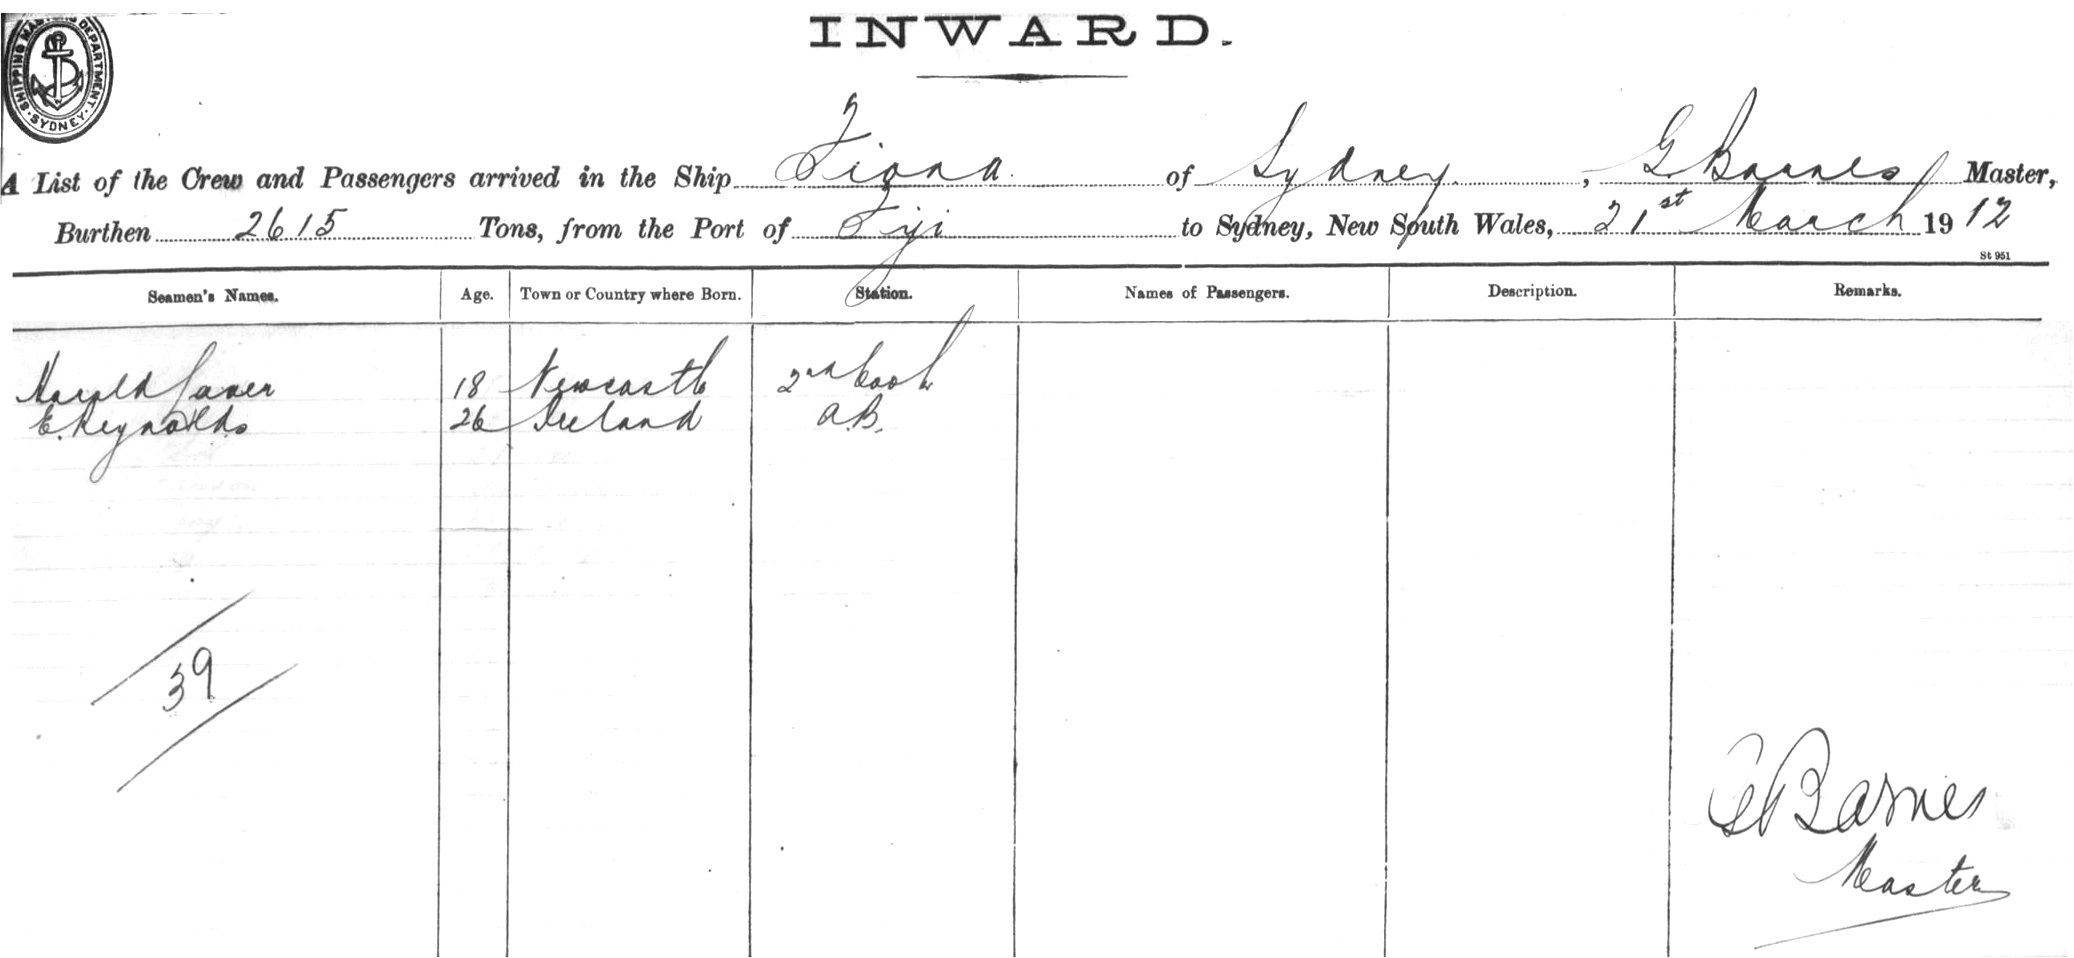 SHIPPING MASTERS DEPARTMENT. SYDNEY.
INWARD.
A List of the Crew and Passengers arrived in the Ship Fiona of Sydney, G Barnes Master,
Burthen 2615 Tons, from the Port of Fiji to Sydney, New South Wales, 21st March 1912
St 951
Seamen's Names. Age. Town or Country where Born. Station. Names of Passengers. Description. Remarks.
Harold 18 Newcastle 2nd Cook
E. Reynolds 26 Ireland A.B.
39
G Barnes
Master